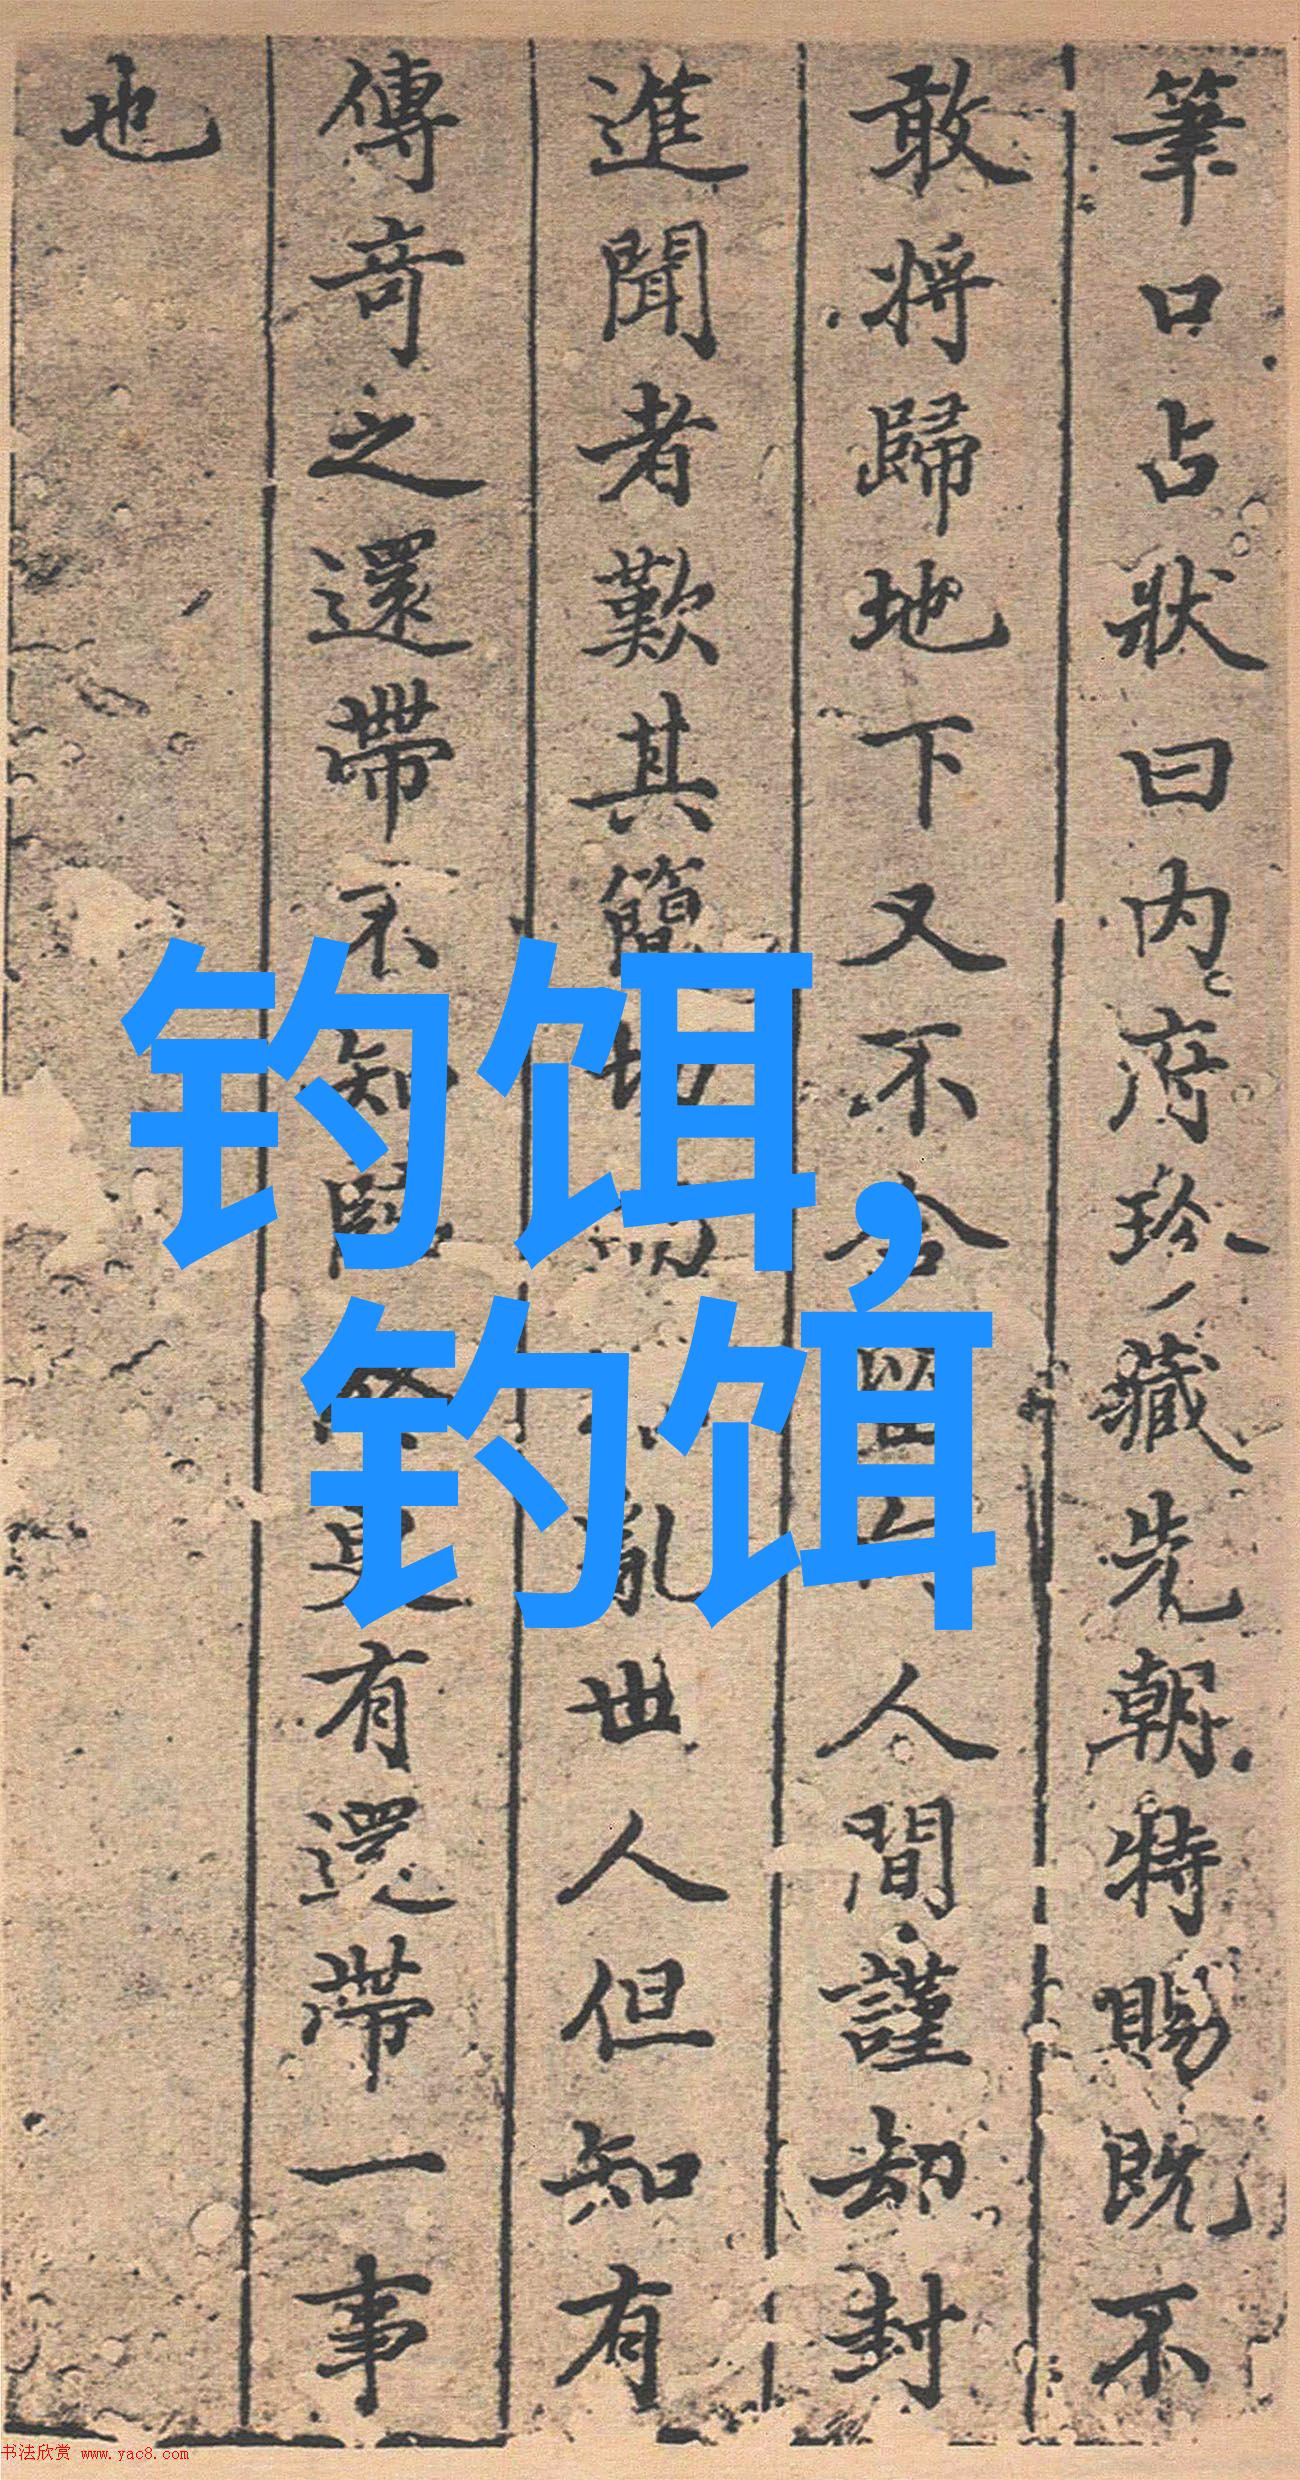 筆口占狀曰内府珍藏先朝特賜既不
敢将歸地下又不合人間謹却封
進聞者歎其簡切亂世人但知有
傳奇之還帶不知有還帶一事
也
钓饵,
钓饵
书法欣赏 www.yac8.com